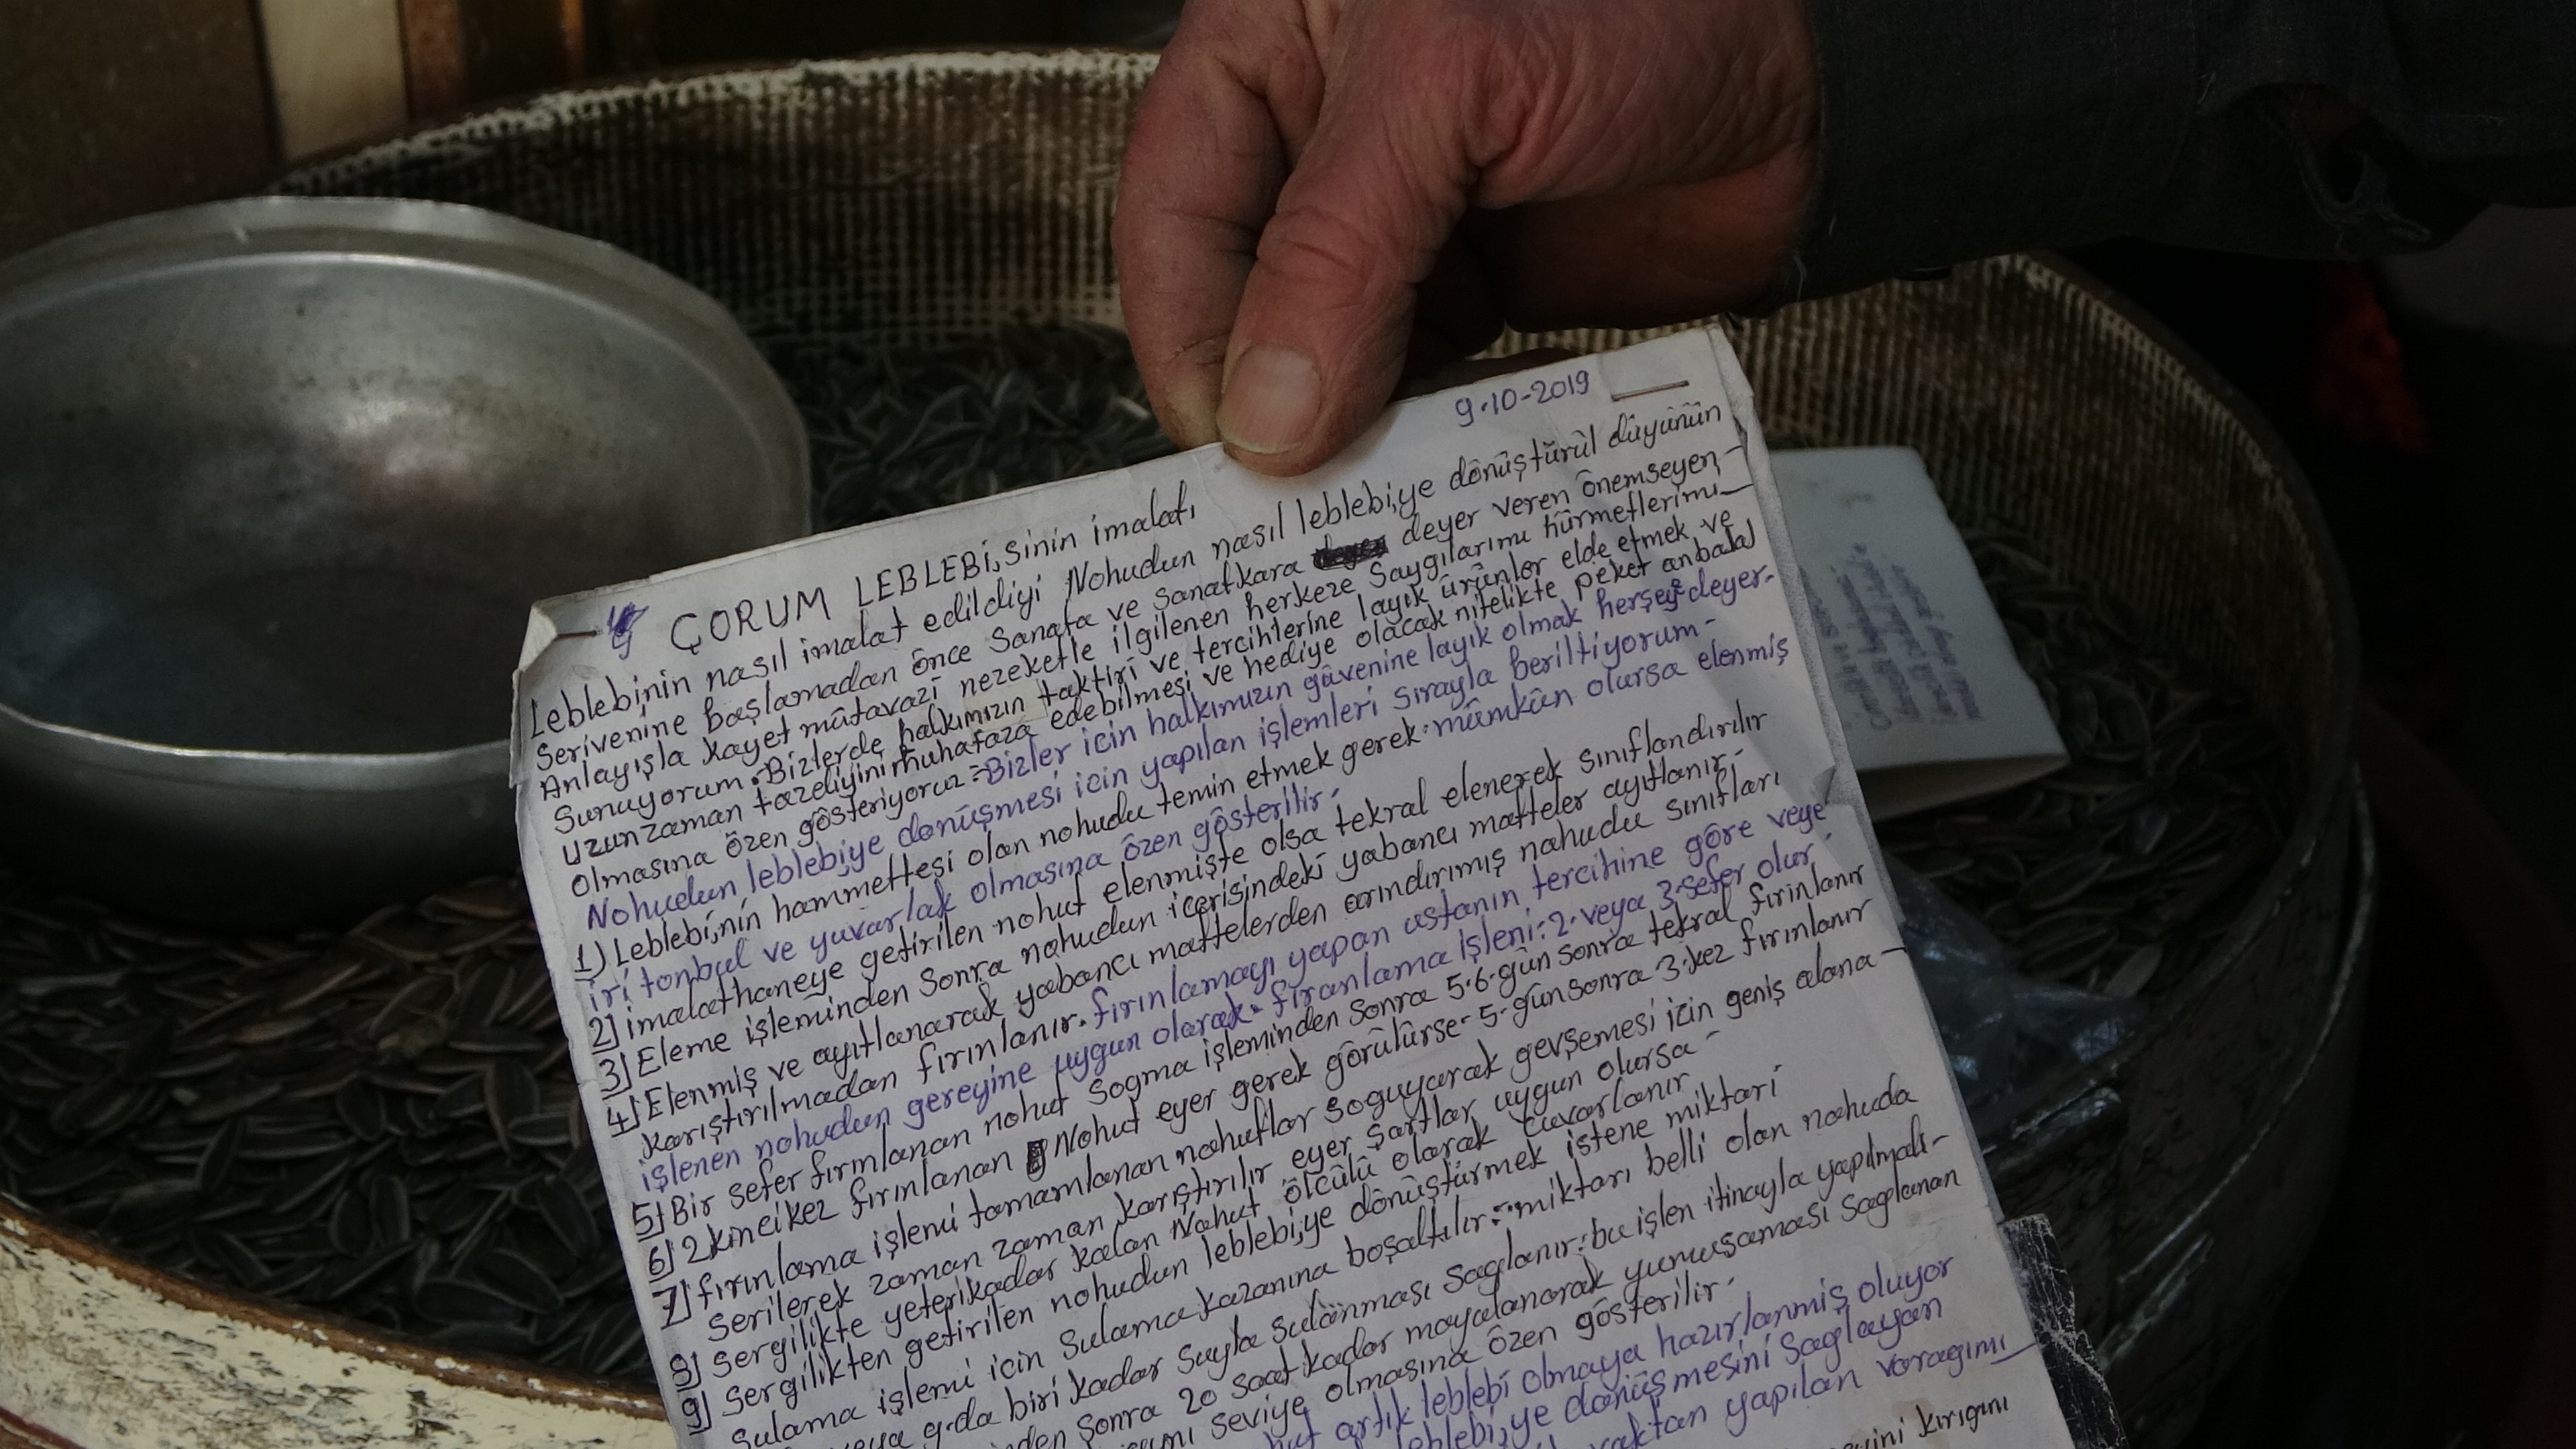 9.10-2019
ÇORUM LEBLEBİ,sinin imalatı
Leblebi,nin nasıl imalat edildiyi Nohudun nasıl leblebi,ye dönüştürül düyünün
Serivenine başlamadan önce Sanata ve Sanatkara deyer veren önemseyen,
Anlayışla kayet mütavazi nezeketle ilgilenen herkeze Saygılarımı hürmetlerimi
Sunuyorum. Bizlerde halkımızın taktiri ve tercihlerine layık ürünler elde etmek ve
uzunzaman tazeliyini muhafaza edebilmesi ve hediye olacak nitelikte peket anbalaj
Olmasına özen gösteriyoruz = Bizler icin halkımızın güvenine layık olmak herşeye deyer.
Nohudun leblebi,ye dönüşmesi icin yapılan işlemleri Sırayla beriltiyorum-
1) Leblebi,nin hammettesi olan nohudu temin etmek gerek. mümkün olursa elenmiş
iri tonbul ve yuvarlak olmasına özen gösterilir.
2] imalathaneye getirilen nohut elenmişte olsa tekral elenerek sınıflandırılır
3] Eleme işleminden Sonra nohudun icerisindeki yabancı matteler ayıtlanır-
4] Elenmiş ve ayıtlanarak yabancı mattelerden arındırımış nahudu sınıfları
karıştırılmadan fırınlanır. fırınlamayı yapan ustanın tercihine göre veye
işlenen nohudun gereyine uygun olarak = fıranlama işleni: 2. veya 3. sefer olur.
5] Bir sefer fırınlanan nohut Sogma işleminden Sonra 5.6.gün sonra tekral fırınlanır
6] 2kinci kez fırınlanan Nohut eyer gerek görülürse. 5. günsonra 3. kez fırınlanır
7] fırınlama işlemi tamamlanan nohutlar soguyarak gevşemesi icin geniş alana-
Serilerek zaman zaman karıştırılır eyer şartlar uygun olursa-
8] Sergilikte yeterikadar kalan Nohut ölcülü olarak cuvarlanır
9] Sergilikten getirilen nohudun leblebi,ye dönüştürmek istene miktari
Sulama işlemi icin Sulama kazanına boşaltılır = miktarı belli olan nohuda
veya g.da biri kadar Suyla Sulanması Saglanır: bu işlen itinayla yapılmalı-
nden Sonra 20 saat kadar mayalanarak yumuşaması Saglanan
seviye olmasına özen gösterilir.
artık leblebi olmaya hazırlanmiş oluyor
leblebi,ye dönüşmesini Saglayan
yapılan varagımı
kırıgını